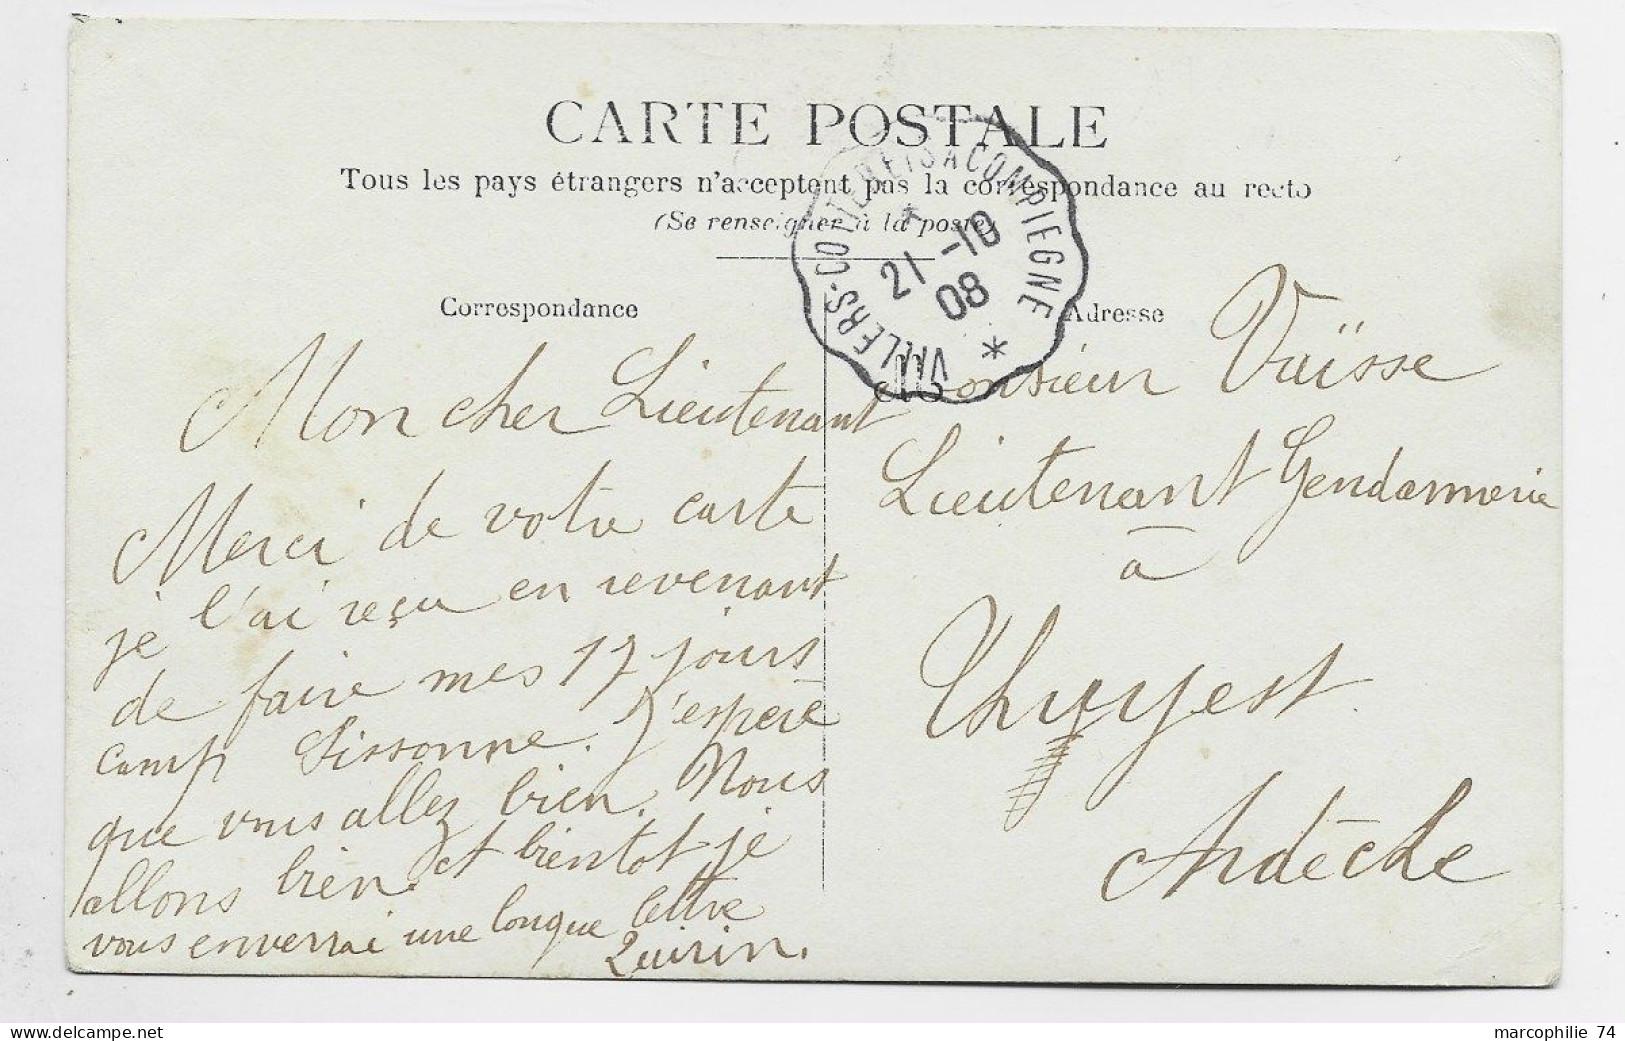 CARTE POSTALE
Tous les pays étrangers n'acceptent pas la correspondance au recto
(Se renseigner à la poste)
VILLERS-COTTERETS A COMPIEGNE
21-10
08
Correspondance
Mon cher Lieutenant
Merci de votre carte
je l'ai reçu en revenant
de faire mes 17 jours
camp Sissonne. J'espère
que vous allez bien. Nous
allons bien. et bientot je
vous enverrai une longue lettre
Quirin.
Adresse
Monsieur Vaïsse
Lieutenant Gendarmerie
à
Thuyest
Ardèche
marcophilie 74